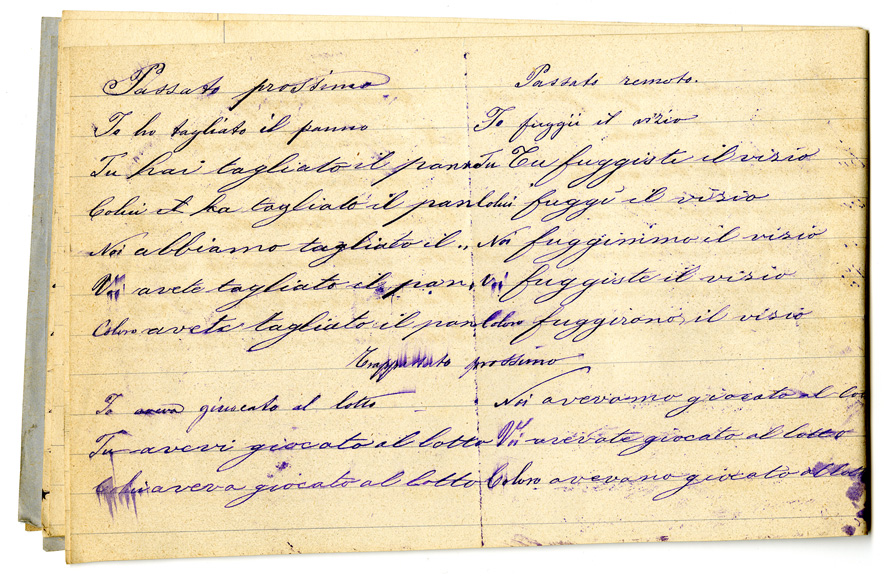 Passato prossimo
Io ho tagliato il panno
Tu hai tagliato il pann
Colui ha tagliato il pan
Noi abbiamo tagliato il „
Voi avete tagliato il pan.
Coloro avete tagliato il pan
Passato remoto.
Io fuggii il vizio
Tu Tu fuggiste il vizio
Colui fuggì il vizio
Noi fuggimmo il vizio
Voi fuggiste il vizio
Coloro fuggirono il vizio
Trappassato prossimo
Io aveva giuocato al lotto
Tu avevi giocato al lotto
Colui aveva giocato al lotto
Noi avevamo giocato al lot
Voi avevate giocato al lotto
Coloro avevano giocato al lotto